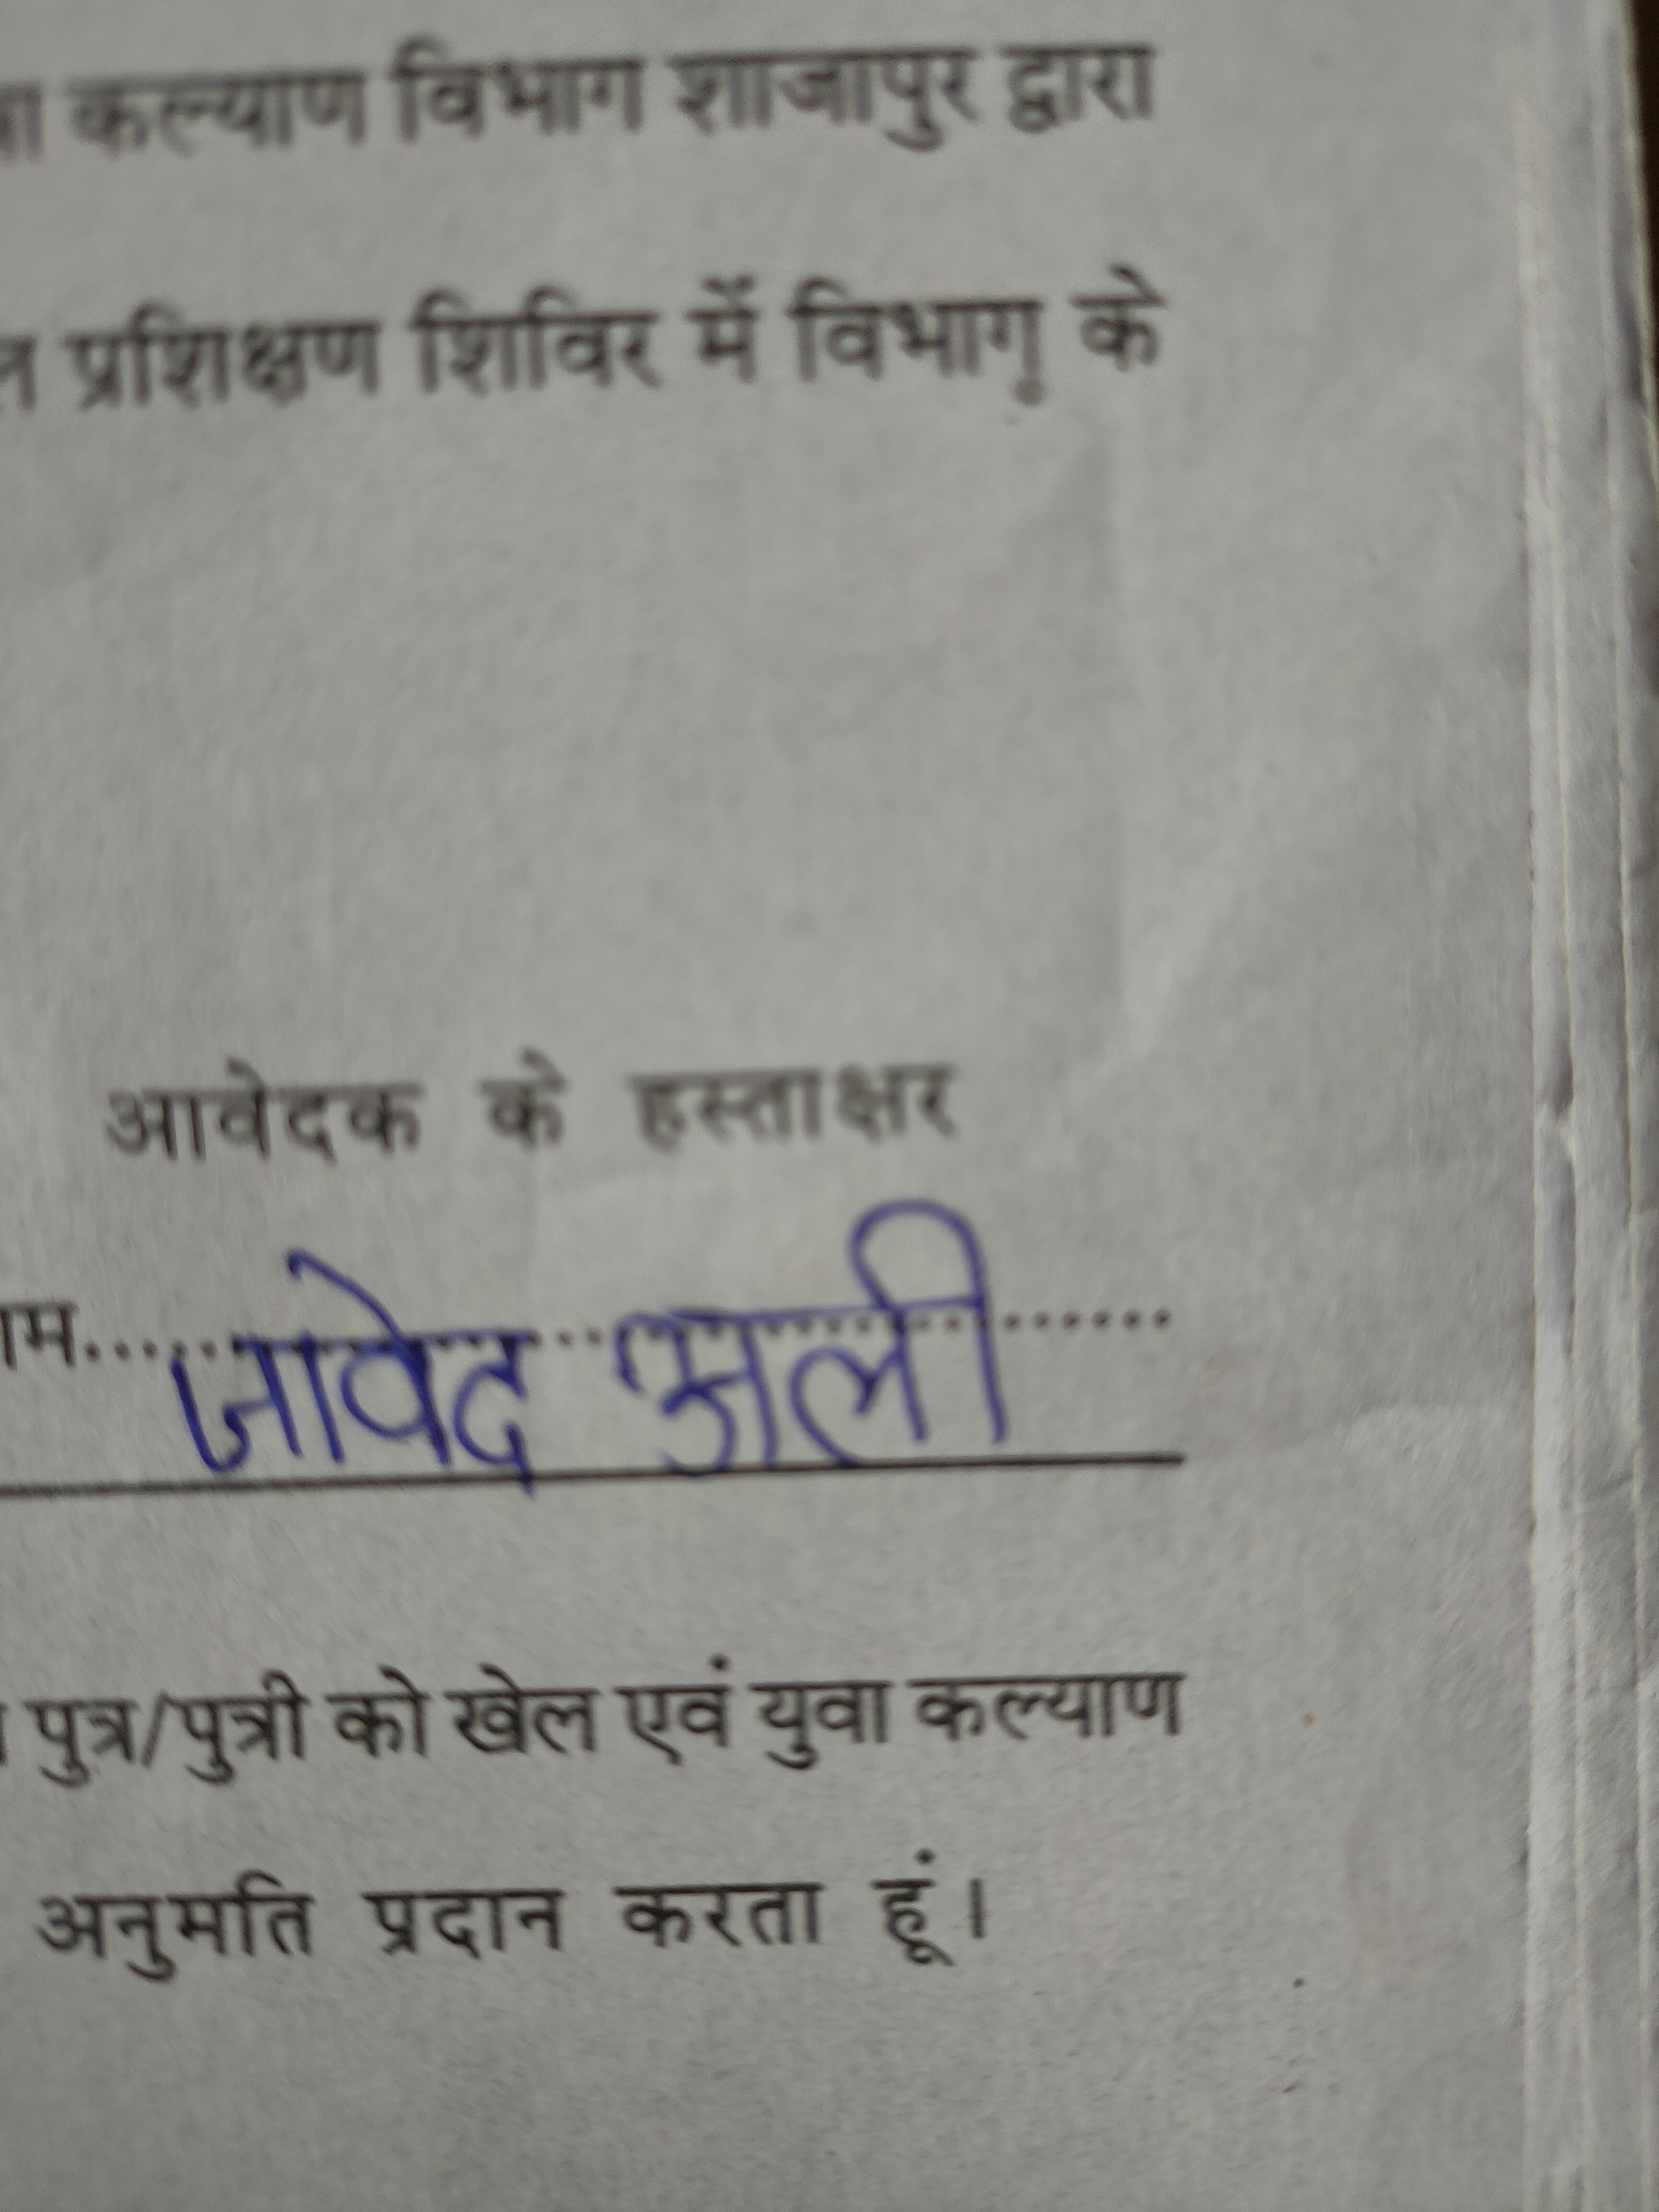 कल्याण विभाग शाजापुर द्वारा
प्रशिक्षण शिविर में विभाग के
आवेदक के हस्ताक्षर
जावेद अली
पुत्र/पुत्री को खेल एवं युवा कल्याण
अनुमति प्रदान करता हूं।